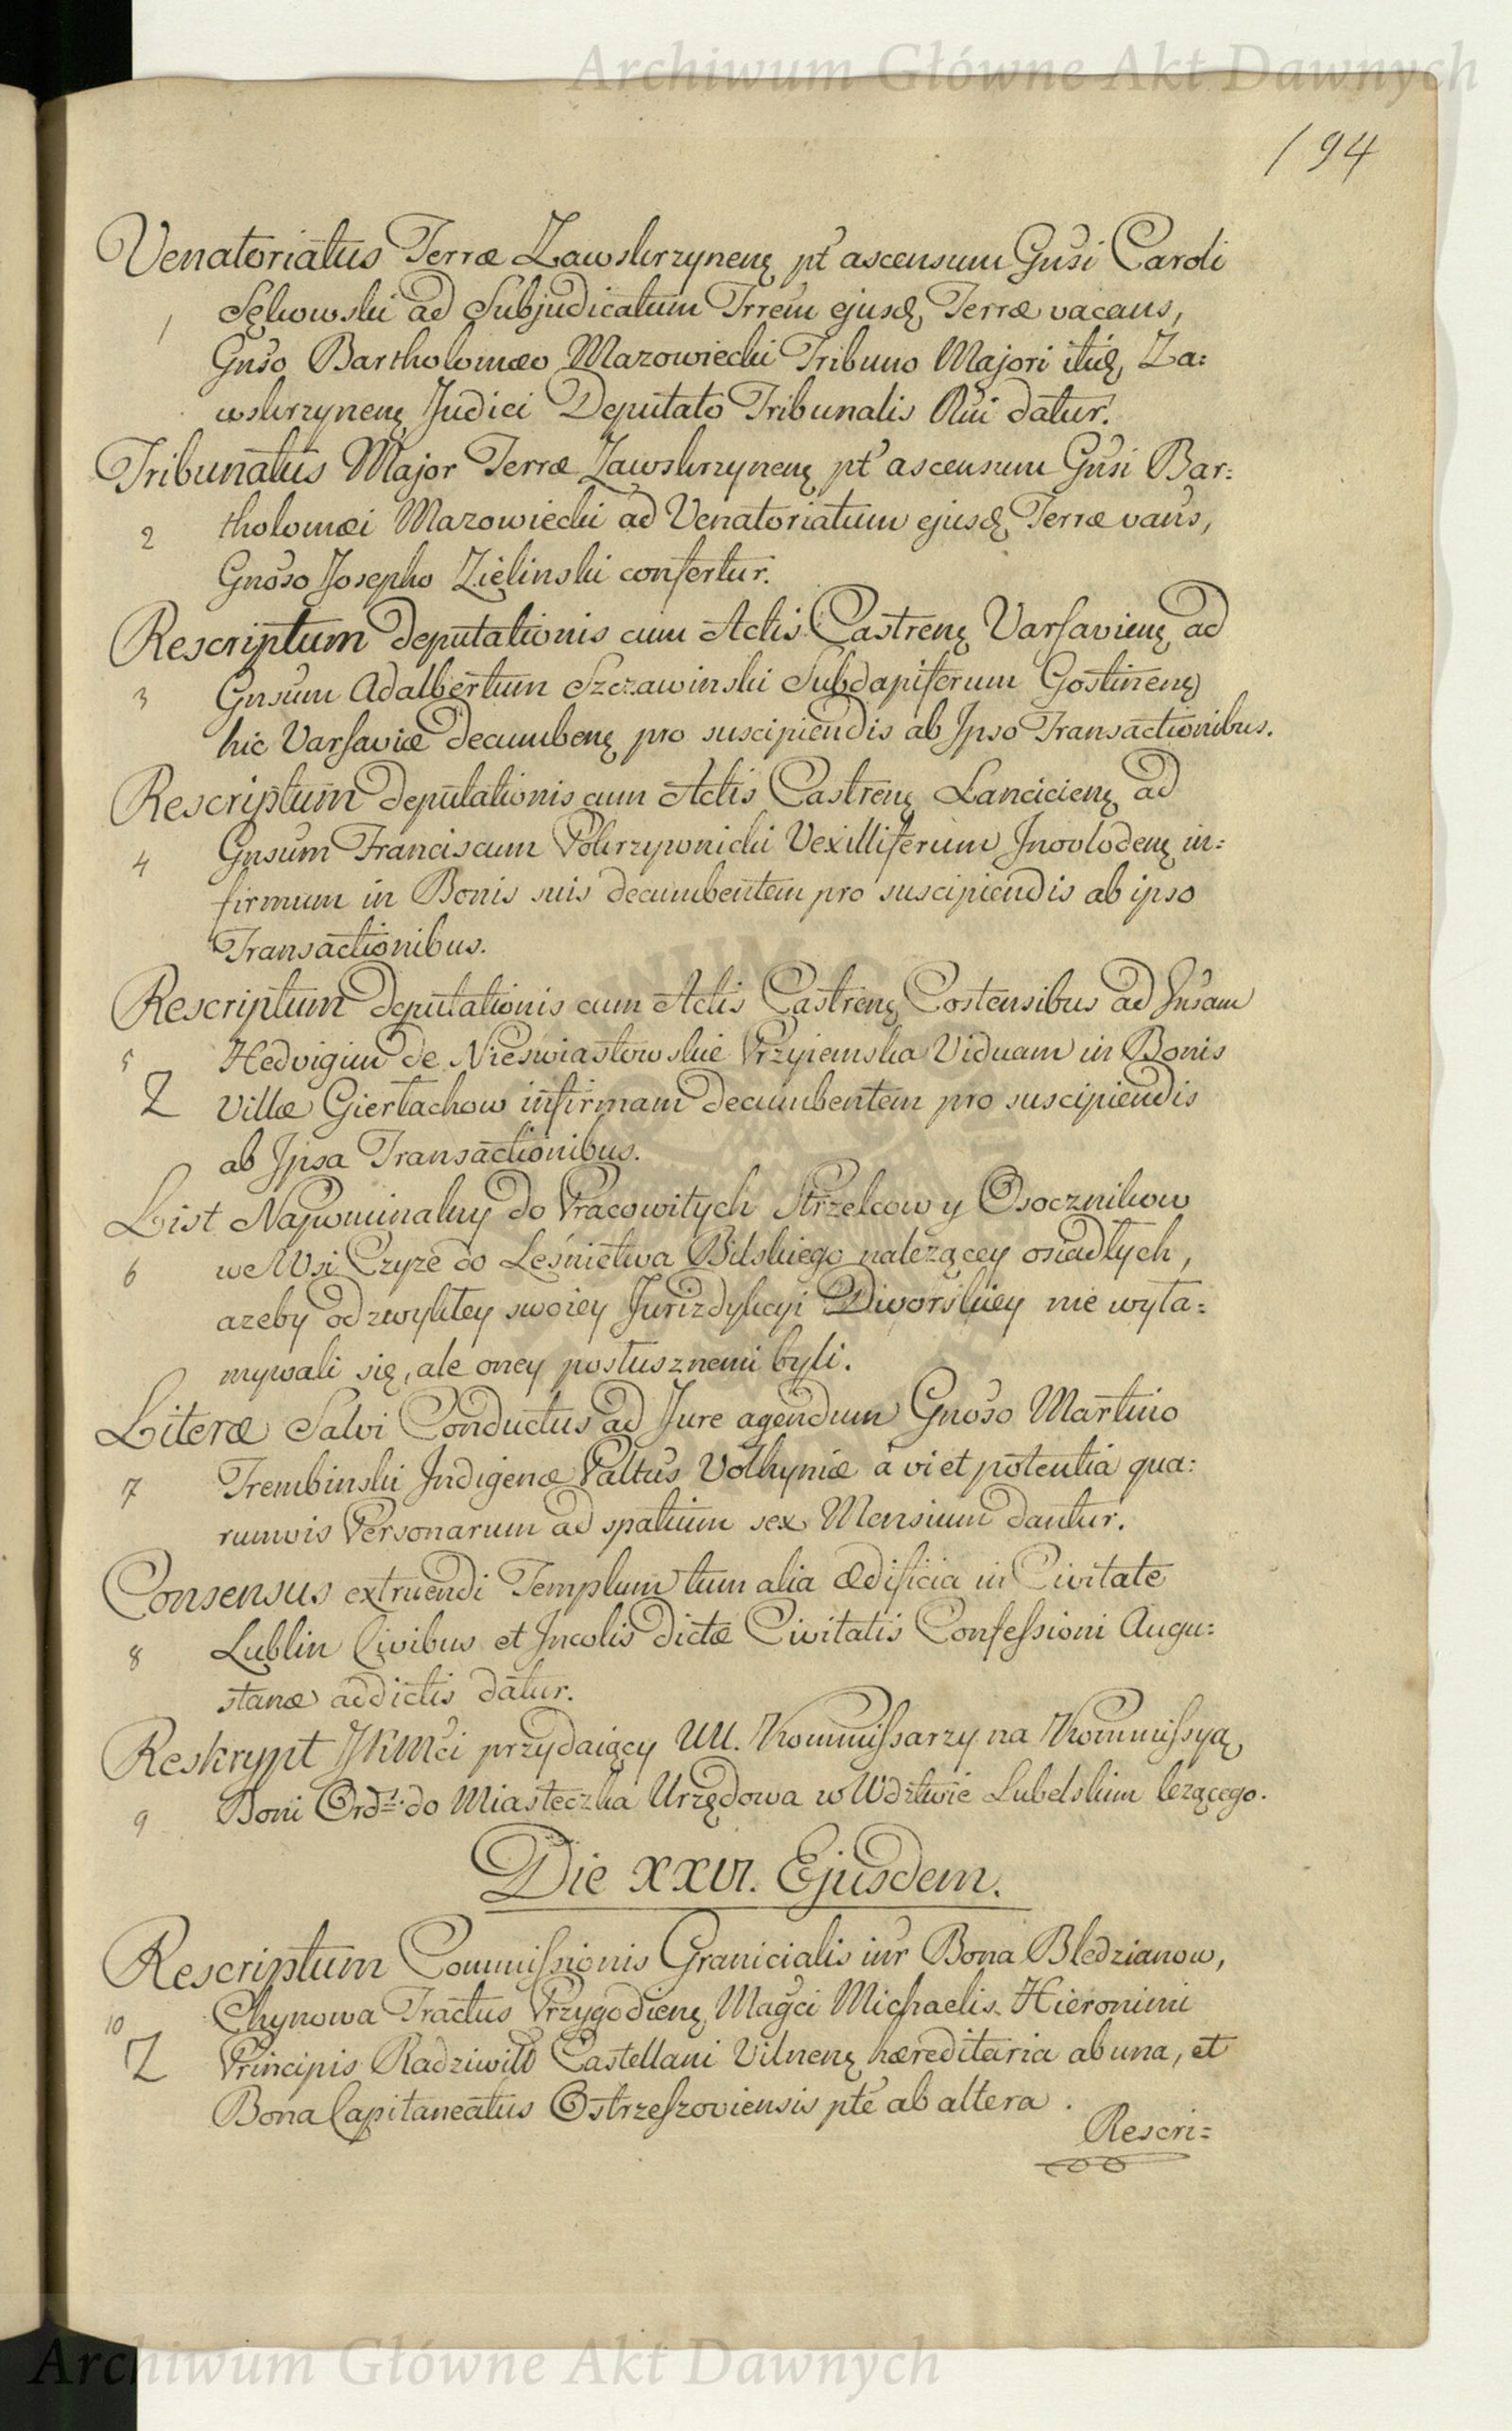 Archiwum Główne Akt Dawnych
194
Venatoriatus Terræ Zawskrzynenę pt ascensum Gnsi Caroli
1 Sękowski ad Subjudicatum Trrem ejusd, Terræ vacans,
Gnso Bartholomæo Mazowiecki Tribuno Majori itid, Za:
wskrzynenę Judici Deputato Tribunalis Rni datur.
Tribunatus Major Terræ Zawskrzynenę pt ascensum Gnsi Bar:
2 tholomæi Mazowiecki ad Venatoriatum ejusd, Terræ vans,
Gnoso Josepho Zielinski confertur.
Rescriptum deputationis cum Actis Castrenę Varsavienę ad
3 Gnsum Adalbertum Szczawinski Subdapiferum Gostinenę
hic Varsaviæ decumbenę pro suscipiendis ab Ipso Transactionibus.
Rescriptum deputationis cum Actis Castrenę Lancicienę ad
4 Gnsum Franciscum Pokrzywnicki Vexilliferum Inovlodenę in:
firmum in Bonis suis decumbentem pro suscipiendis ab ipso
Transactionibus.
Rescriptum deputationis cum Actis Castrenę Costensibus ad Gnsam
5 Hedvigim de Nieswiastowskie Przyiemska Viduam in Bonis
Z Villæ Giertachow infirmam decumbentem pro suscipiendis
ab Ipsa Transactionibus.
List Napominalny do Pracowitych Strzelcow y Osocznikow
6 we Wsi Czyże do Leśnictwa Bilskiego należącey osiadłych,
azeby od zwykłey swoiey Jurizdykcyi Dworskiey nie wyła:
mywali się, ale oney posłusznemi byli.
Literæ Salvi Conductus ad Jure agendum Gnoso Martino
7 Trembinski Indigenæ Pałtus Volhyniæ a vi et potentia qua:
rumvis Personarum ad spatium sex Mensium dantur.
Consensus extruendi Templum tum alia ædificia in Civitate
8 Lublin Civibus et Incolis dictæ Civitatis Confessioni Augu:
stanæ addictis datur.
Reskrypt JKMci przydaiący UU. Kommissarzy na Kommissyą
9 Boni Ord: do Miasteczka Urzędowa w Wdztwie Lubelskim leżącego.
Die XXVI. Ejusdem.
Rescriptum Commissionis Granicialis inr Bona Bledzianow,
10 Chynowa Tractus Przygodzienę Magci Michaelis Hieronimi
Z Principis Radziwiłł Castellani Vilnenę hæreditaria ab una, et
Bona Capitaneatus Ostrzeszoviensis pte ab altera.
Rescri:
Archiwum Główne Akt Dawnych